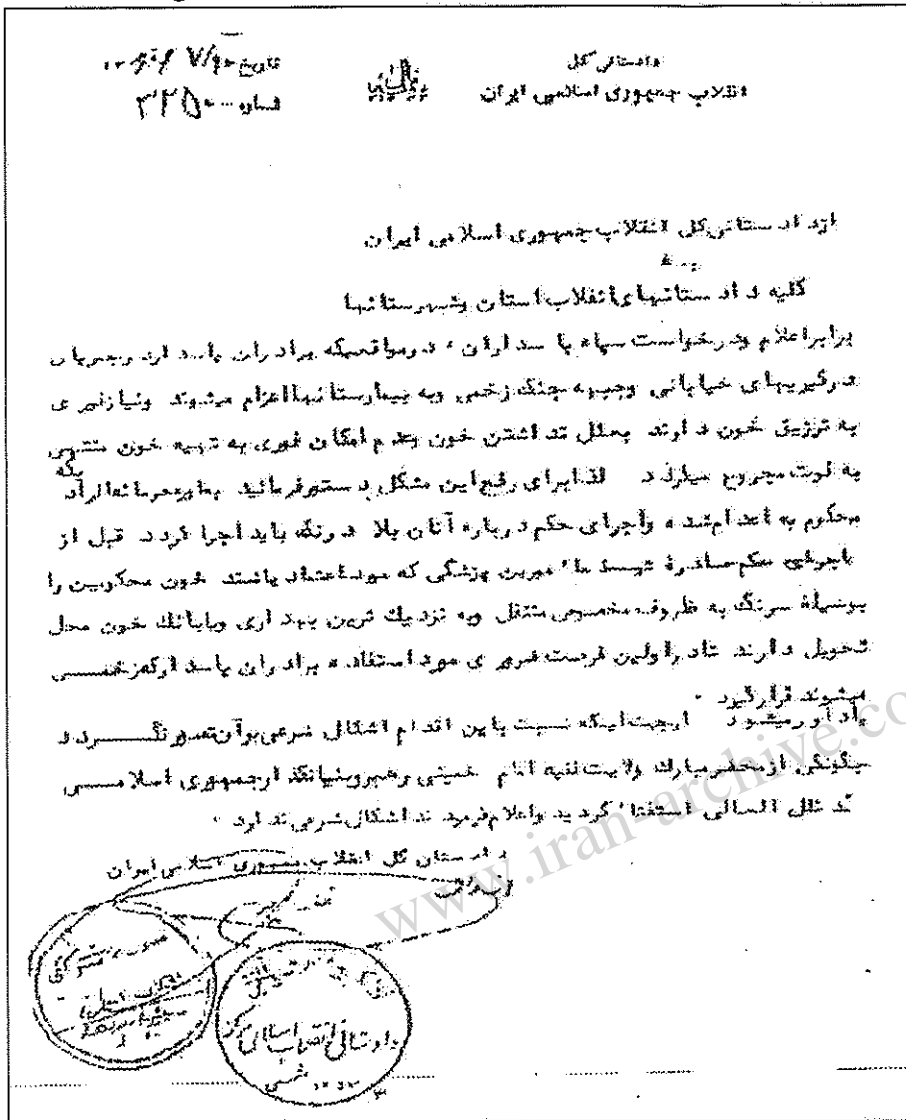 دادستانی کل
انقلاب جمهوری اسلامی ایران
تاریخ
شماره ۳۲۵۰۰
ازدادستانی کل انقلاب جمهوری اسلامی ایران
به
کلیه دادستانیهای انقلاب استان وشهرستانها
برابراعلام ودرخواست سپاه پاسداران ، درمواقعیکه برادران پاسدار درجریان
درگیریهای خیابانی وجبهه جنگ زخمی وبه بیمارستانهااعزام میشوند ونیازفوری
به تزریق خون دارند بعلل نداشتن خون وعدم امکان فوری به تهیه خون منتهی
به فوت مجروح میگردد لذابرای رفع این مشکل دستورفرمائید بطورمحرمانه افرادیکه
محکوم به اعدام شده واجرای حکم درباره آنان بلا درنگ باید اجرا گردد قبل از
اجرای حکم صادره توسط مأمورین پزشکی که مورداعتماد باشند خون محکومین را
بوسیلهٔ سرنگ به ظروف مخصوص منتقل وبه نزدیك ترین بهداری ویابانك خون محل
تحویل دارند تادراولین فرصت ضروری مورداستفاده برادران پاسدارکه زخمی
میشوند قرارگیرد .
یادآورمیشود ازجهت اینکه نسبت باین اقدام اشکال شرعی برآن تصورنگردد
چگونگی ازمحضرمبارك ولایت فقیه امام خمینی رهبروبنیانگذارجمهوری اسلامی
مد ظله العالی استفتاء گردید واعلام فرمودند اشکال شرعی ندارد .
دادستان کل انقلاب جمهوری اسلامی ایران
دادستانی انقلاب اسلامی مرکز
www.iran-archive.co